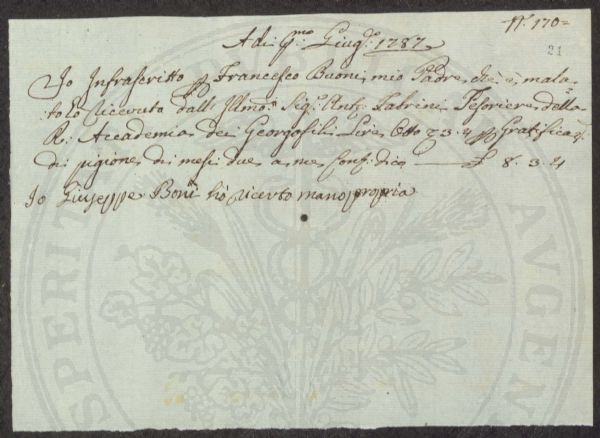 N.° 170=
21
A di p:mo Giug:o 1787
Io Infrascritto p Francesco Buoni mio Padre, che è mala=
to hò ricevuto dall Illmo: Sig:e Ant:o Fabrini Tesoriere della
R: Accademia dei Georgofili Lire Otto 3. 4 p Gratificaz:e
di pigione di mesi due a me £ 8. 3. 4
Io Giuseppe Boni hò ricevto mano propria
PROSPERITATI AUGENDAE